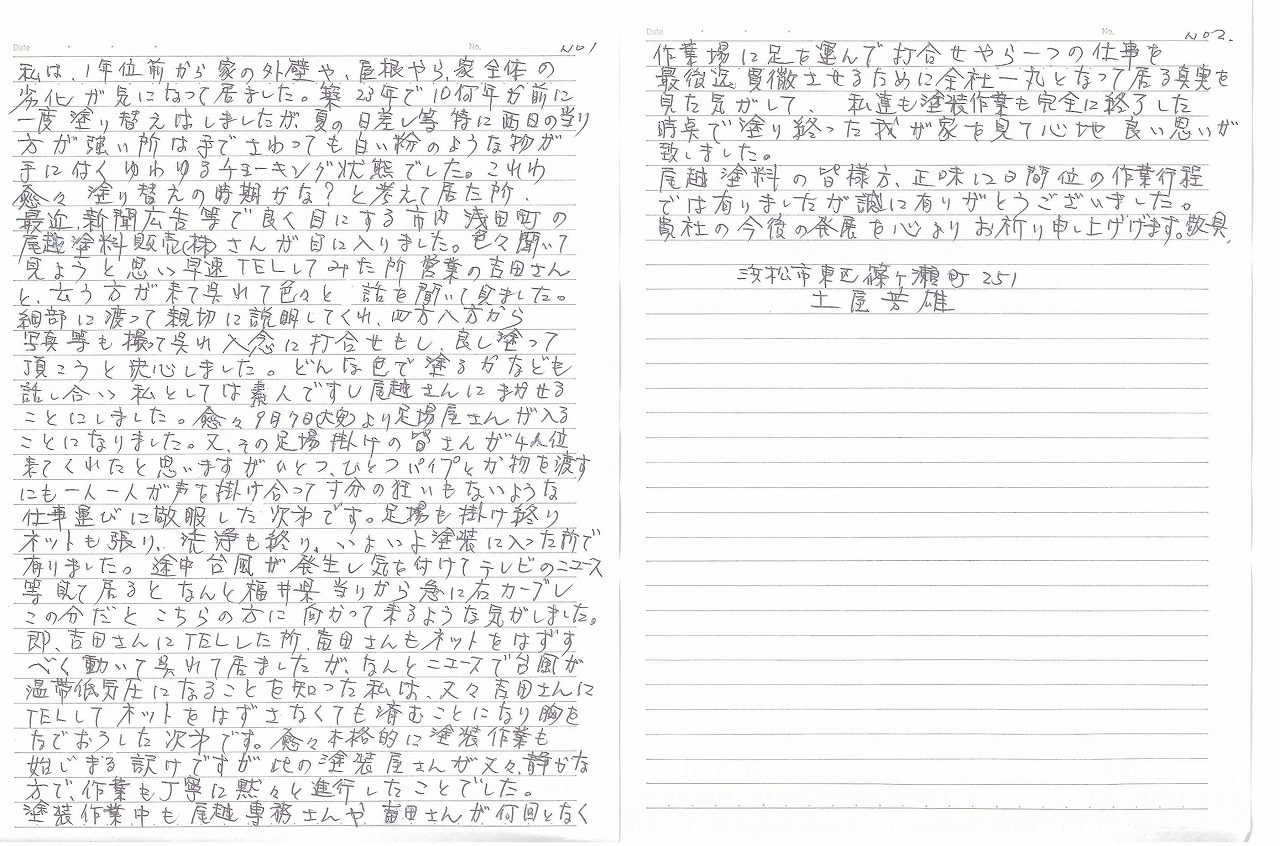 Date ・ ・ ・ No. NO1
私は、1年位前から家の外壁や、屋根やら、家全体の
劣化が気になって居ました。築23年で10何年か前に
一度塗り替えはしましたが、夏の日差し等特に西日の当り
方が強い所は手でさわっても白い粉のような物が
手に付くゆわゆるチョーキング状態でした。これわ
愈々塗り替えの時期かな?と考えて居た所、
最近、新聞広告等で良く目にする市内浅田町の
尾越塗料販売(株)さんが目に入りました。色々聞いて
見ようと思い早速TELしてみた所営業の吉田さん
と、云う方が来て呉れて色々と話を聞いて見ました。
細部に渡って親切に説明してくれ、四方八方から
写真等も撮って呉れ入念に打合せもし、良し塗って
頂こうと決心しました。どんな色で塗るかなども
話し合い私としては素人ですし尾越さんにまかせる
ことにしました。愈々9月7日より足場屋さんが入る
ことになりました。又、その足場掛けの皆さんが4人位
来てくれたと思いますがひとつ、ひとつパイプとか物を渡す
にも一人一人が声を掛け合って寸分の狂いもないような
仕事運びに敬服した次第です。足場も掛け終り
ネットも張り、洗浄も終り、いよいよ塗装に入った所で
有りました。途中台風が発生し気を付けてテレビのニュース
等見て居るとなんと福井県当りから急に右カーブし
この分だとこちらの方に向かって来るような気がしました。
即、吉田さんにTELした所、吉田さんもネットをはずす
べく動いて呉れて居ましたが、なんとニュースで台風が
温帯低気圧になることを知った私は、又々吉田さんに
TELしてネットをはずさなくても済むことになり胸を
なでおろした次第です。愈々本格的に塗装作業も
始じまる訳けですが此の塗装屋さんが又々、静かな
方で、作業も丁寧に黙々と進行したことでした。
塗装作業中も尾越専務さんや、吉田さんが何回となく
Date ・ ・ ・ No. NO2.
作業場に足を運んで打合せやら一つの仕事を
最後迄貫徹させるために全社一丸となって居る真実を
見た気がして、私達も塗装作業も完全に終了した
時点で塗り終った我が家を見て心地良い思いが
致しました。
尾越塗料の皆様方、正味12日間位の作業行程
では有りましたが誠に有りがとうございました。
貴社の今後の発展を心よりお祈り申し上げげます。敬具、
浜松市東区篠ヶ瀬町251
土屋芳雄